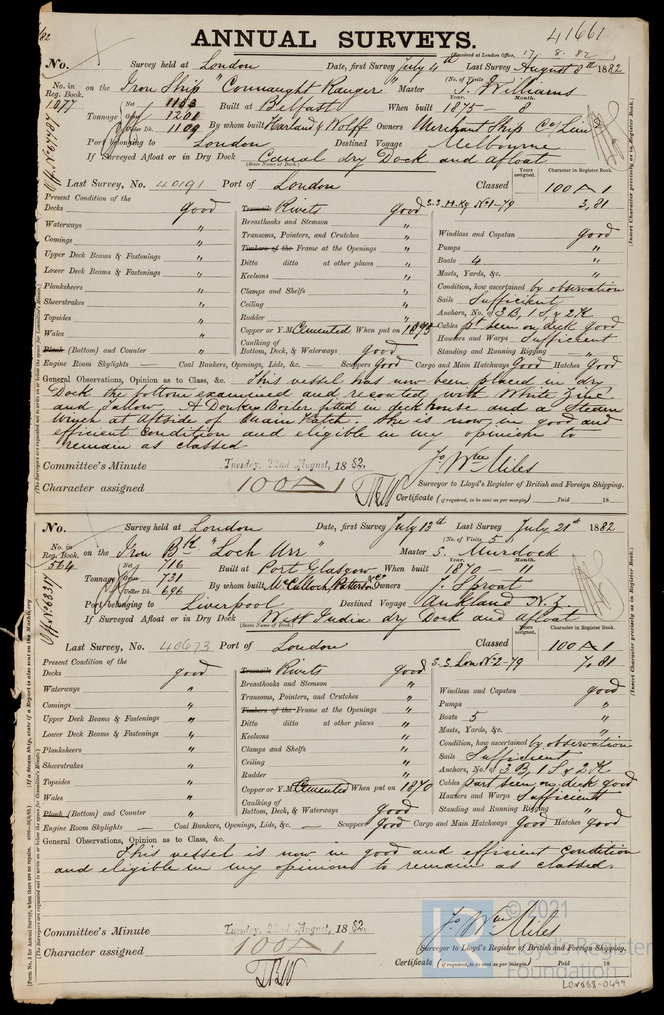 41661
ANNUAL SURVEYS.
(Received at London Office, 17. 8. 82
No. Survey held at London Date, first Survey July 4th Last Survey August 8th 1882
(No. of Visits
No. in Reg. Book. on the Iron Ship "Connaught Ranger" Master J. Williams
1077 Tonnage Net 1163 Built at Belfast When built Year. 1875 — Month. 8
Gross 1201
Under Dk. 1109 By whom built Harland & Wolff Owners Merchant Ship Co/ Lim
Port belonging to London Destined Voyage Melbourne
If Surveyed Afloat or in Dry Dock Canal dry Dock and afloat
(State Name of Dock.)
Years assigned. Character in Register Book.
Last Survey, No. 40191 Port of London Classed 100 A 1
3,81
Present Condition of the
Decks good
Waterways "
Comings "
Upper Deck Beams & Fastenings "
Lower Deck Beams & Fastenings "
Planksheers "
Sheerstrakes "
Topsides "
Wales "
Plank (Bottom) and Counter "
Treenails Rivets good
Breasthooks and Stemson "
Transoms, Pointers, and Crutches "
Timbers of the Frame at the Openings "
Ditto ditto at other places "
Keelsons "
Clamps and Shelfs "
Ceiling "
Rudder "
Copper or Y.M. Cemented When put on 1875
Caulking of Bottom, Deck, & Waterways good
S.S. No 1-79
Windlass and Capstan good
Pumps "
Boats 4 "
Masts, Yards, &c. "
Condition, how ascertained by observation
Sails Sufficient
Anchors, No. of 3 B, 1 S, & 2 K
Cables pt seen on deck good
Hawsers and Warps Sufficient
Standing and Running Rigging "
Engine Room Skylights — Coal Bunkers, Openings, Lids, &c. — Scuppers good Cargo and Main Hatchways Good Hatches Good
General Observations, Opinion as to Class, &c. This vessel has now been placed in dry
Dock the bottom examined and recoated with White Zinc
and Tallow. A Donkey Boiler fitted in deck house and a Steam
Winch at Aftside of Main Hatch. She is now in good and
efficient condition and eligible in my opinion to
remain as classed
Committee's Minute Tuesday, 22nd August, 1882.
Character assigned 100 A 1
Jo Wm Miles
Surveyor to Lloyd's Register of British and Foreign Shipping.
Certificate (if required, to be sent as per margin) Paid 18
No. Survey held at London Date, first Survey July 13th Last Survey July 21st 1882
(No. of Visits 5
No. in Reg. Book. on the Iron Bk "Loch Urr" Master S. Murdock
564 Tonnage Net 716 Built at Port Glasgow When built Year. 1870 — Month. 11
Gross 731
Under Dk. 696 By whom built McCulloch, Patterson & Co Owners J. Sproat
Port belonging to Liverpool Destined Voyage Auckland N.Z.
If Surveyed Afloat or in Dry Dock West India dry Dock and afloat
(State Name of Dock.)
Years assigned. Character in Register Book.
Last Survey, No. 40673 Port of London Classed 100 A 1
7,81
Present Condition of the
Decks good
Waterways "
Comings "
Upper Deck Beams & Fastenings "
Lower Deck Beams & Fastenings "
Planksheers "
Sheerstrakes "
Topsides "
Wales "
Plank (Bottom) and Counter "
Treenails Rivets good
Breasthooks and Stemson "
Transoms, Pointers, and Crutches "
Timbers of the Frame at the Openings "
Ditto ditto at other places "
Keelsons "
Clamps and Shelfs "
Ceiling "
Rudder "
Copper or Y.M. Cemented When put on 1870
Caulking of Bottom, Deck, & Waterways good
S.S. Lon No 2-79
Windlass and Capstan good
Pumps "
Boats 5 "
Masts, Yards, &c. "
Condition, how ascertained by observation
Sails Sufficient
Anchors, No. of 3 B, 1 S, & 2 K
Cables part seen on deck good
Hawsers and Warps Sufficient
Standing and Running Rigging "
Engine Room Skylights — Coal Bunkers, Openings, Lids, &c. — Scuppers good Cargo and Main Hatchways Good Hatches Good
General Observations, Opinion as to Class, &c.
This vessel is now in good and efficient condition
and eligible in my opinion to remain as classed.
Committee's Minute Tuesday, 22nd August, 1882.
Character assigned 100 A 1
Jo Wm Miles
Surveyor to Lloyd's Register of British and Foreign Shipping.
Certificate (if required, to be sent as per margin) Paid 18
© 2021
Lloyd's Register
Foundation
LON668-0499